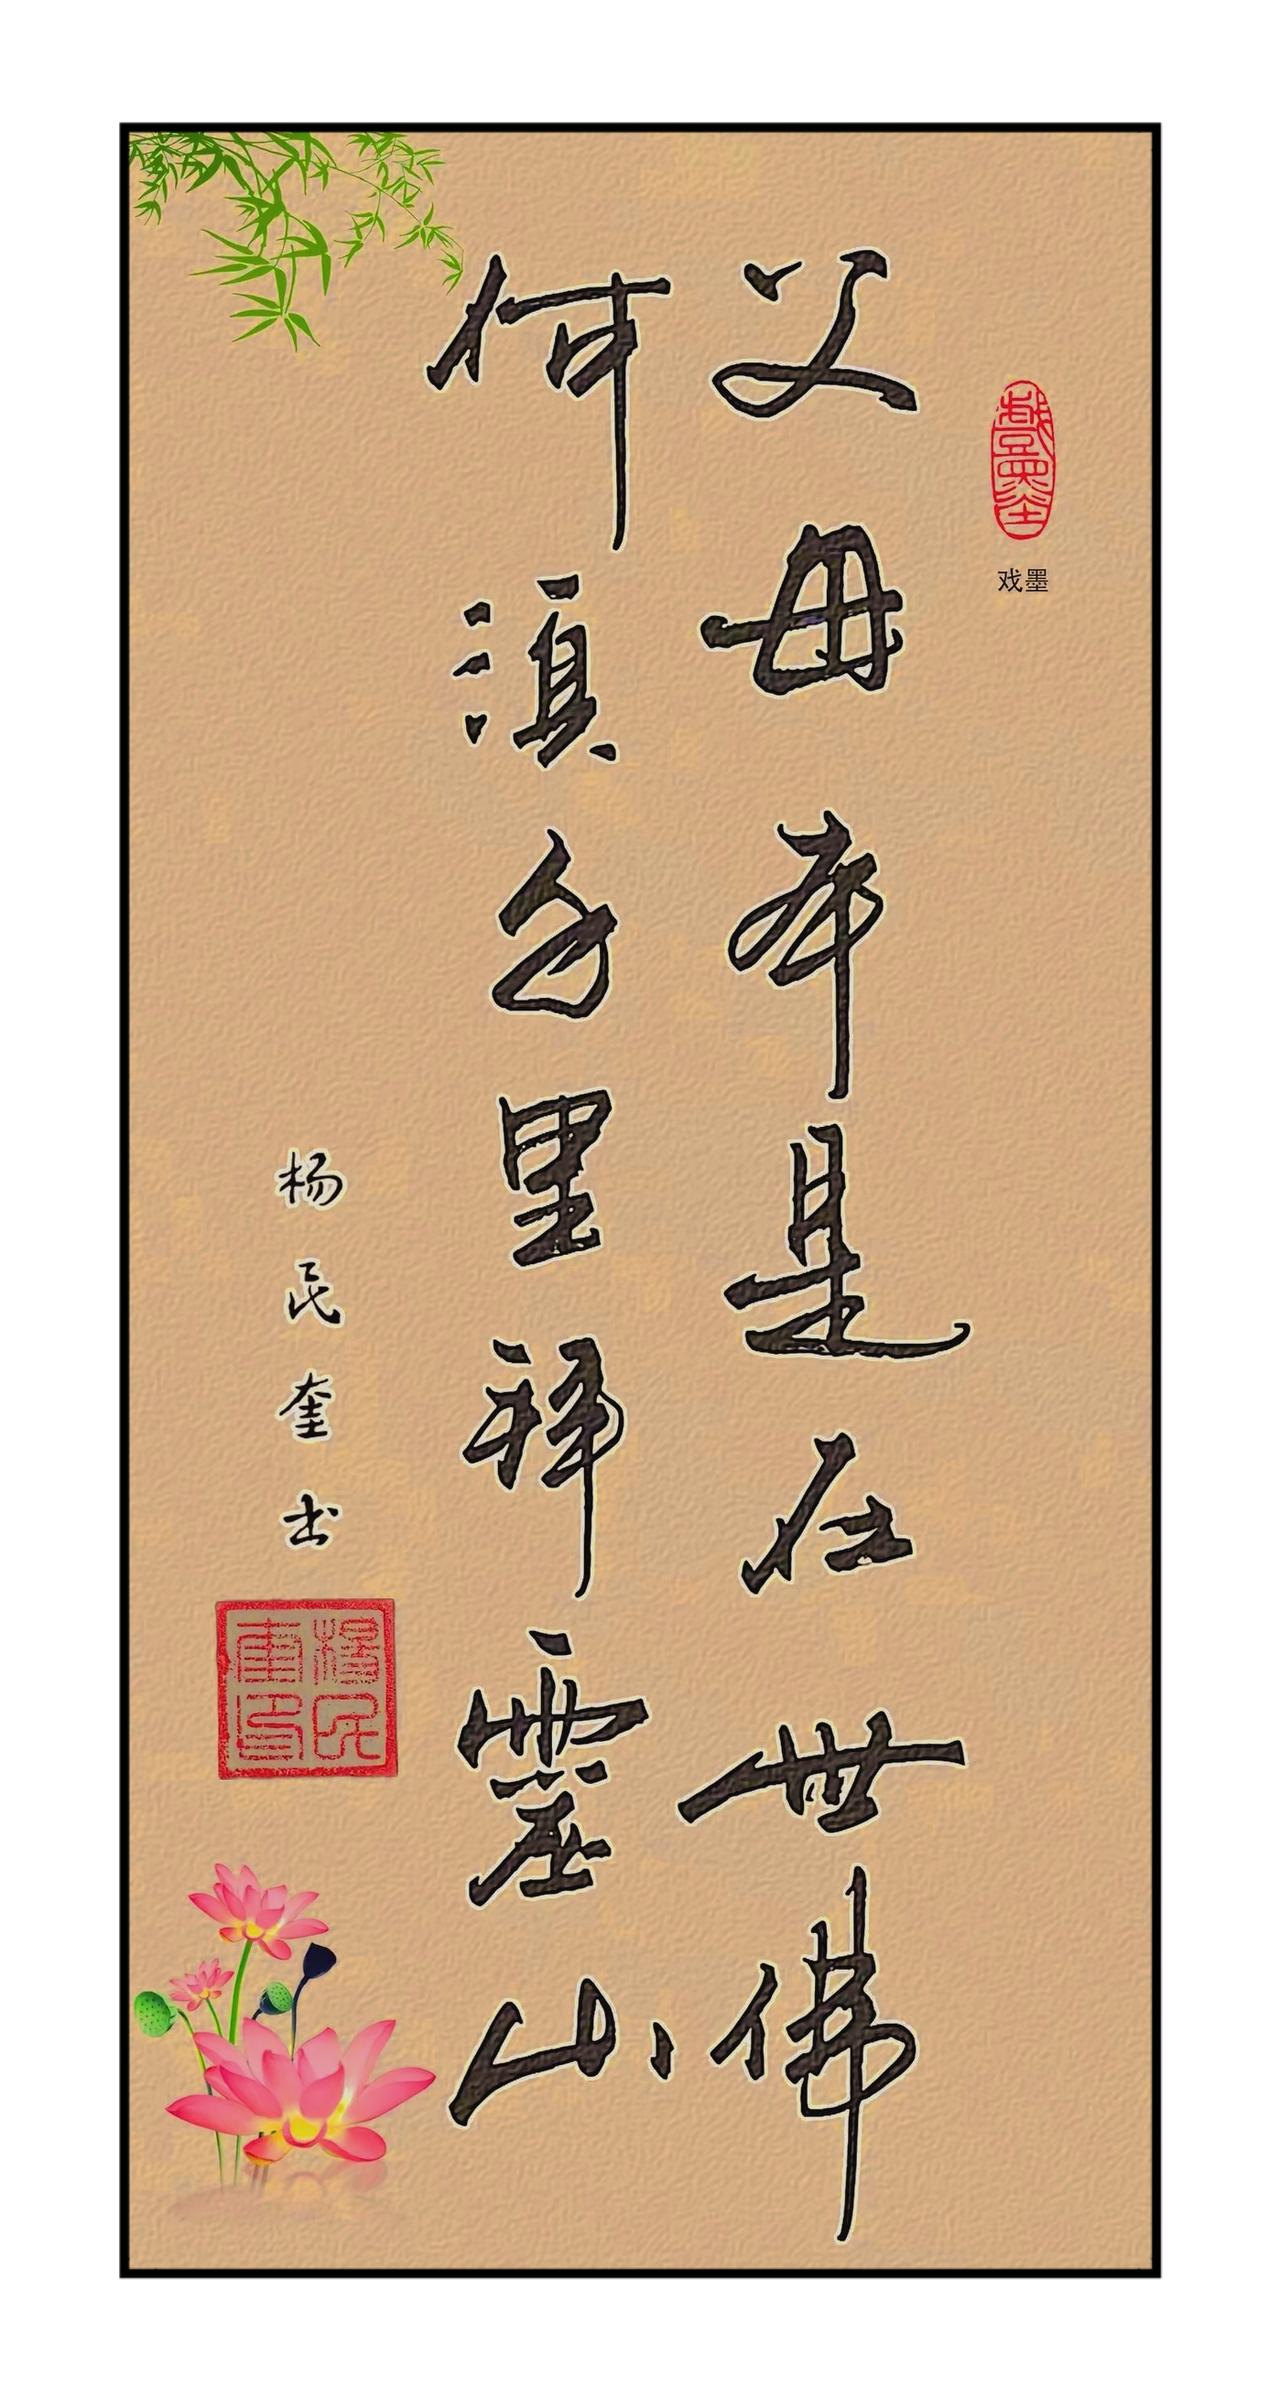 父母本是在世佛
何须千里拜靈山
杨民奎书
戏墨
戏墨
杨民奎印